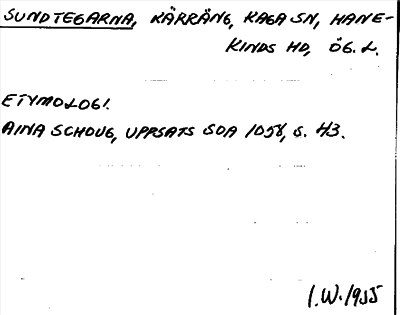 SUNDTEGARNA, KÄRRÄNG, KAGA SN, HANE-
KINDS HD, ÖG. L.
ETYMOLOGI.
AINA SCHOUG, UPPSATS SOA 1058, S. 43.
I.W. 1955